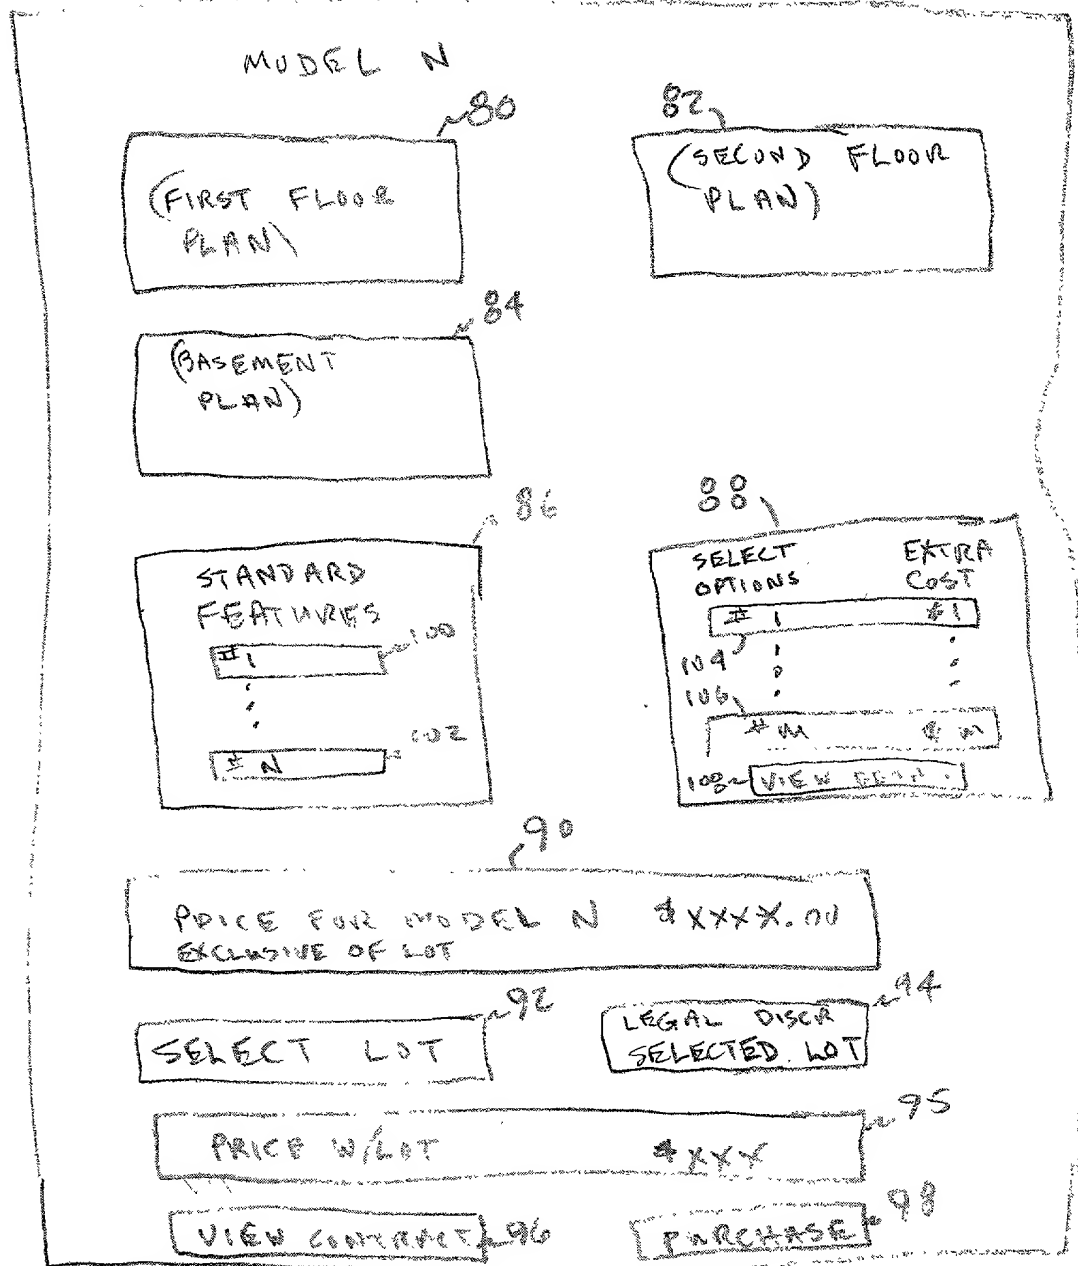 MODEL N
80
82
(FIRST FLOOR
PLAN)
(SECOND FLOOR
PLAN)
84
(BASEMENT
PLAN)
86
88
STANDARD
FEATURES
#1
100
#N
102
SELECT EXTRA
OPTIONS COST
#1 $1
104
106
#M $M
108 VIEW
90
PRICE FOR MODEL N $XXXX.00
EXCLUSIVE OF LOT
92
94
SELECT LOT
LEGAL DISCR
SELECTED LOT
95
PRICE W/LOT $XXX
VIEW CONTRACT 96
PURCHASE 98